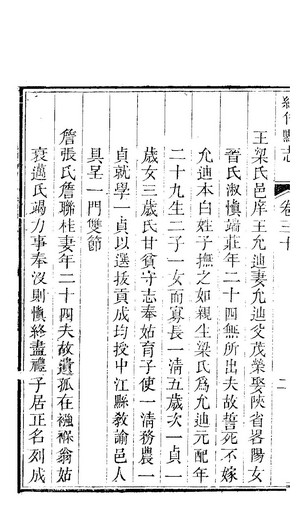 卷三十
二
王梁氏邑庠王允迪妻允迪父茂榮娶陝省畧陽女
晉氏淑慎端莊年二十四無所出夫故誓死不嫁
允迪本白姓子撫之如親生梁氏爲允迪元配年
二十九生二子一女而寡長一清五歲次一貞一
歲女三歲氏甘貧守志奉姑育子使一清務農一
貞就學一貞以選拔貢成均授中江縣敎諭邑人
具呈一門雙節
詹張氏詹聯桂妻年二十四夫故遺孤在襁褓翁姑
衰邁氏竭力事奉沒則愼終盡禮子居正名列成